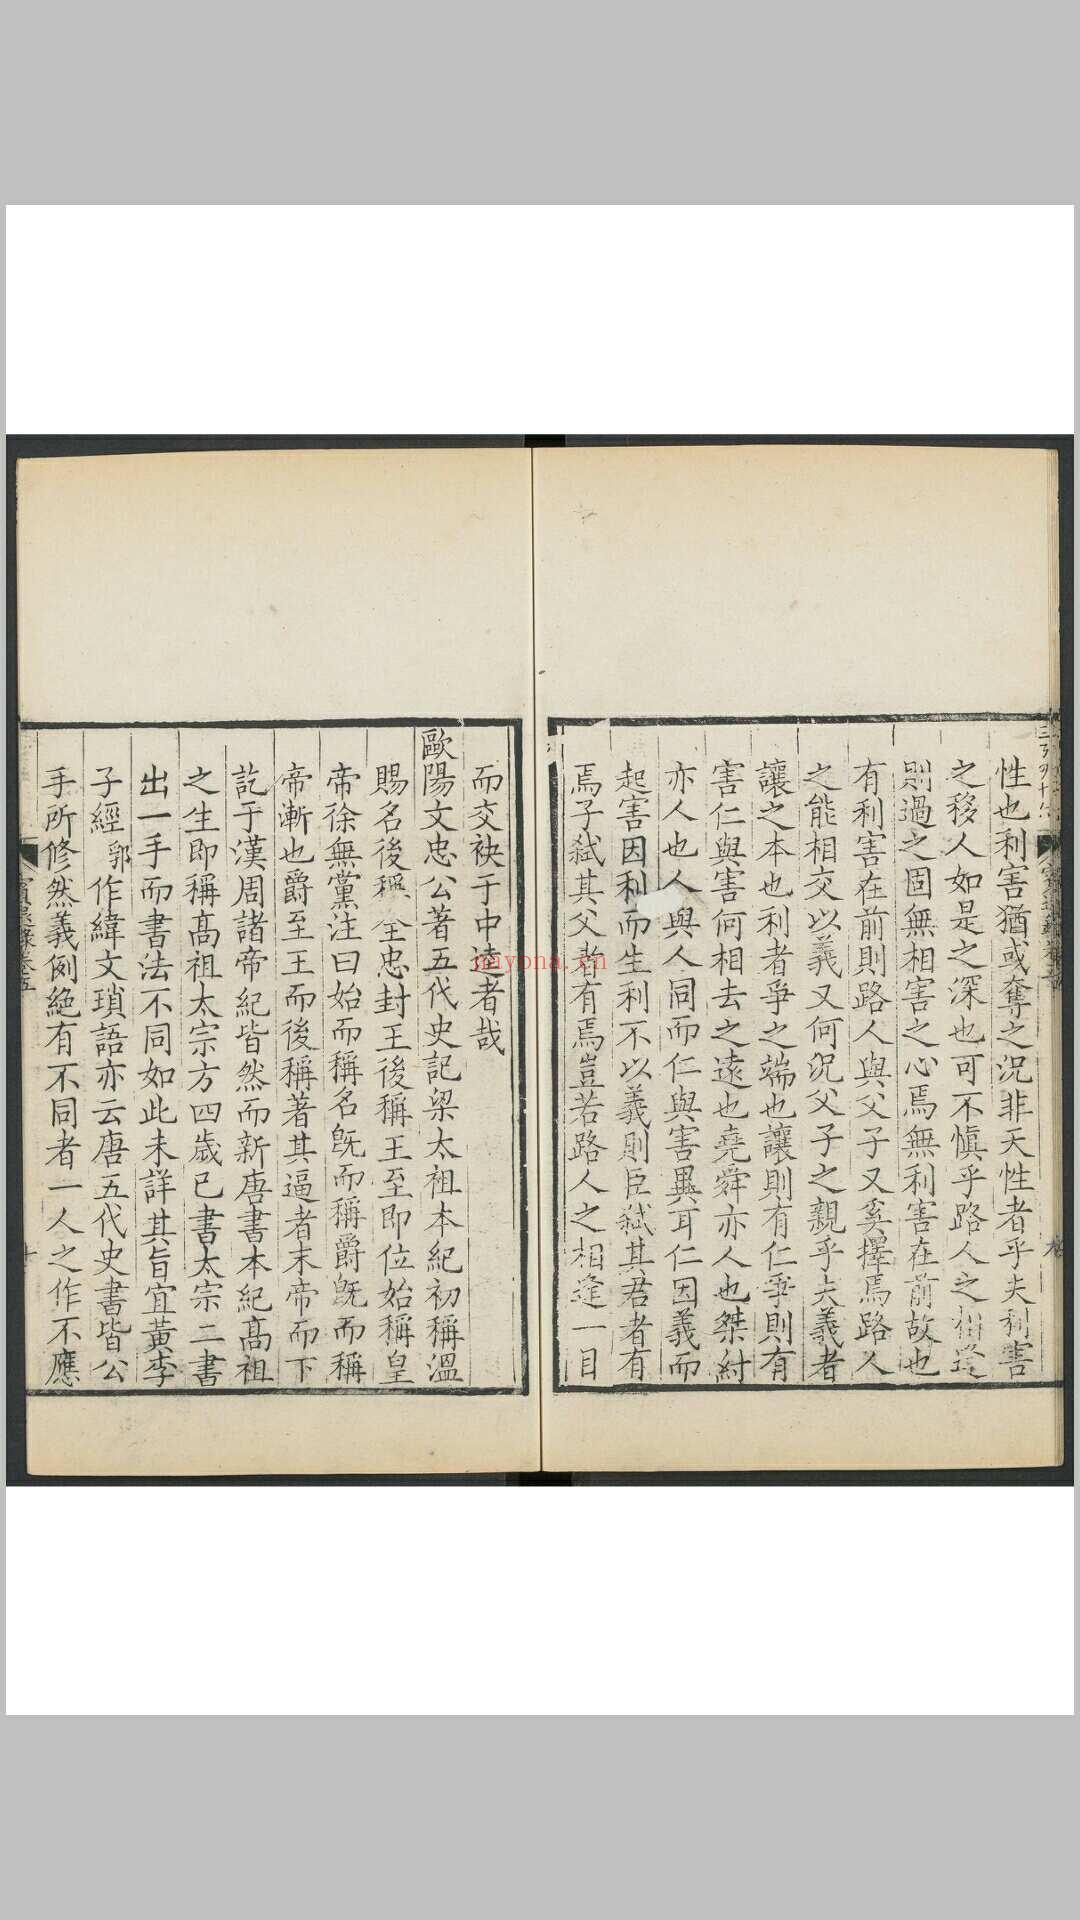 性也利害猶或奪之況非天性者乎夫利害
之移人如是之深也可不慎乎路人之相逢
則過之固無相害之心焉無利害在前故也
有利害在前則路人與父子又奚擇焉路人
之能相交以義又何況父子之親乎夫義者
讓之本也利者爭之端也讓則有仁爭則有
害仁與害何相去之遠也堯舜亦人也桀紂
亦人也人與人同而仁與害異耳仁因義而
起害因利而生利不以義則臣弒其君者有
焉子弒其父者有焉豈若路人之相逢一目
而交袂于中逵者哉
歐陽文忠公著五代史記梁太祖本紀初稱溫
賜名後稱全忠封王後稱王至即位始稱皇
帝徐無黨注曰始而稱名旣而稱爵旣而稱
帝漸也爵至王而後稱著其逼者末帝而下
訖于漢周諸帝紀皆然而新唐書本紀髙祖
之生即稱髙祖太宗方四歲已書太宗二書
出一手而書法不同如此未詳其旨宜黃李
子經郛作緯文瑣語亦云唐五代史書皆公
手所修然義例絶有不同者一人之作不應
賓退錄卷五
十
nayona.cn